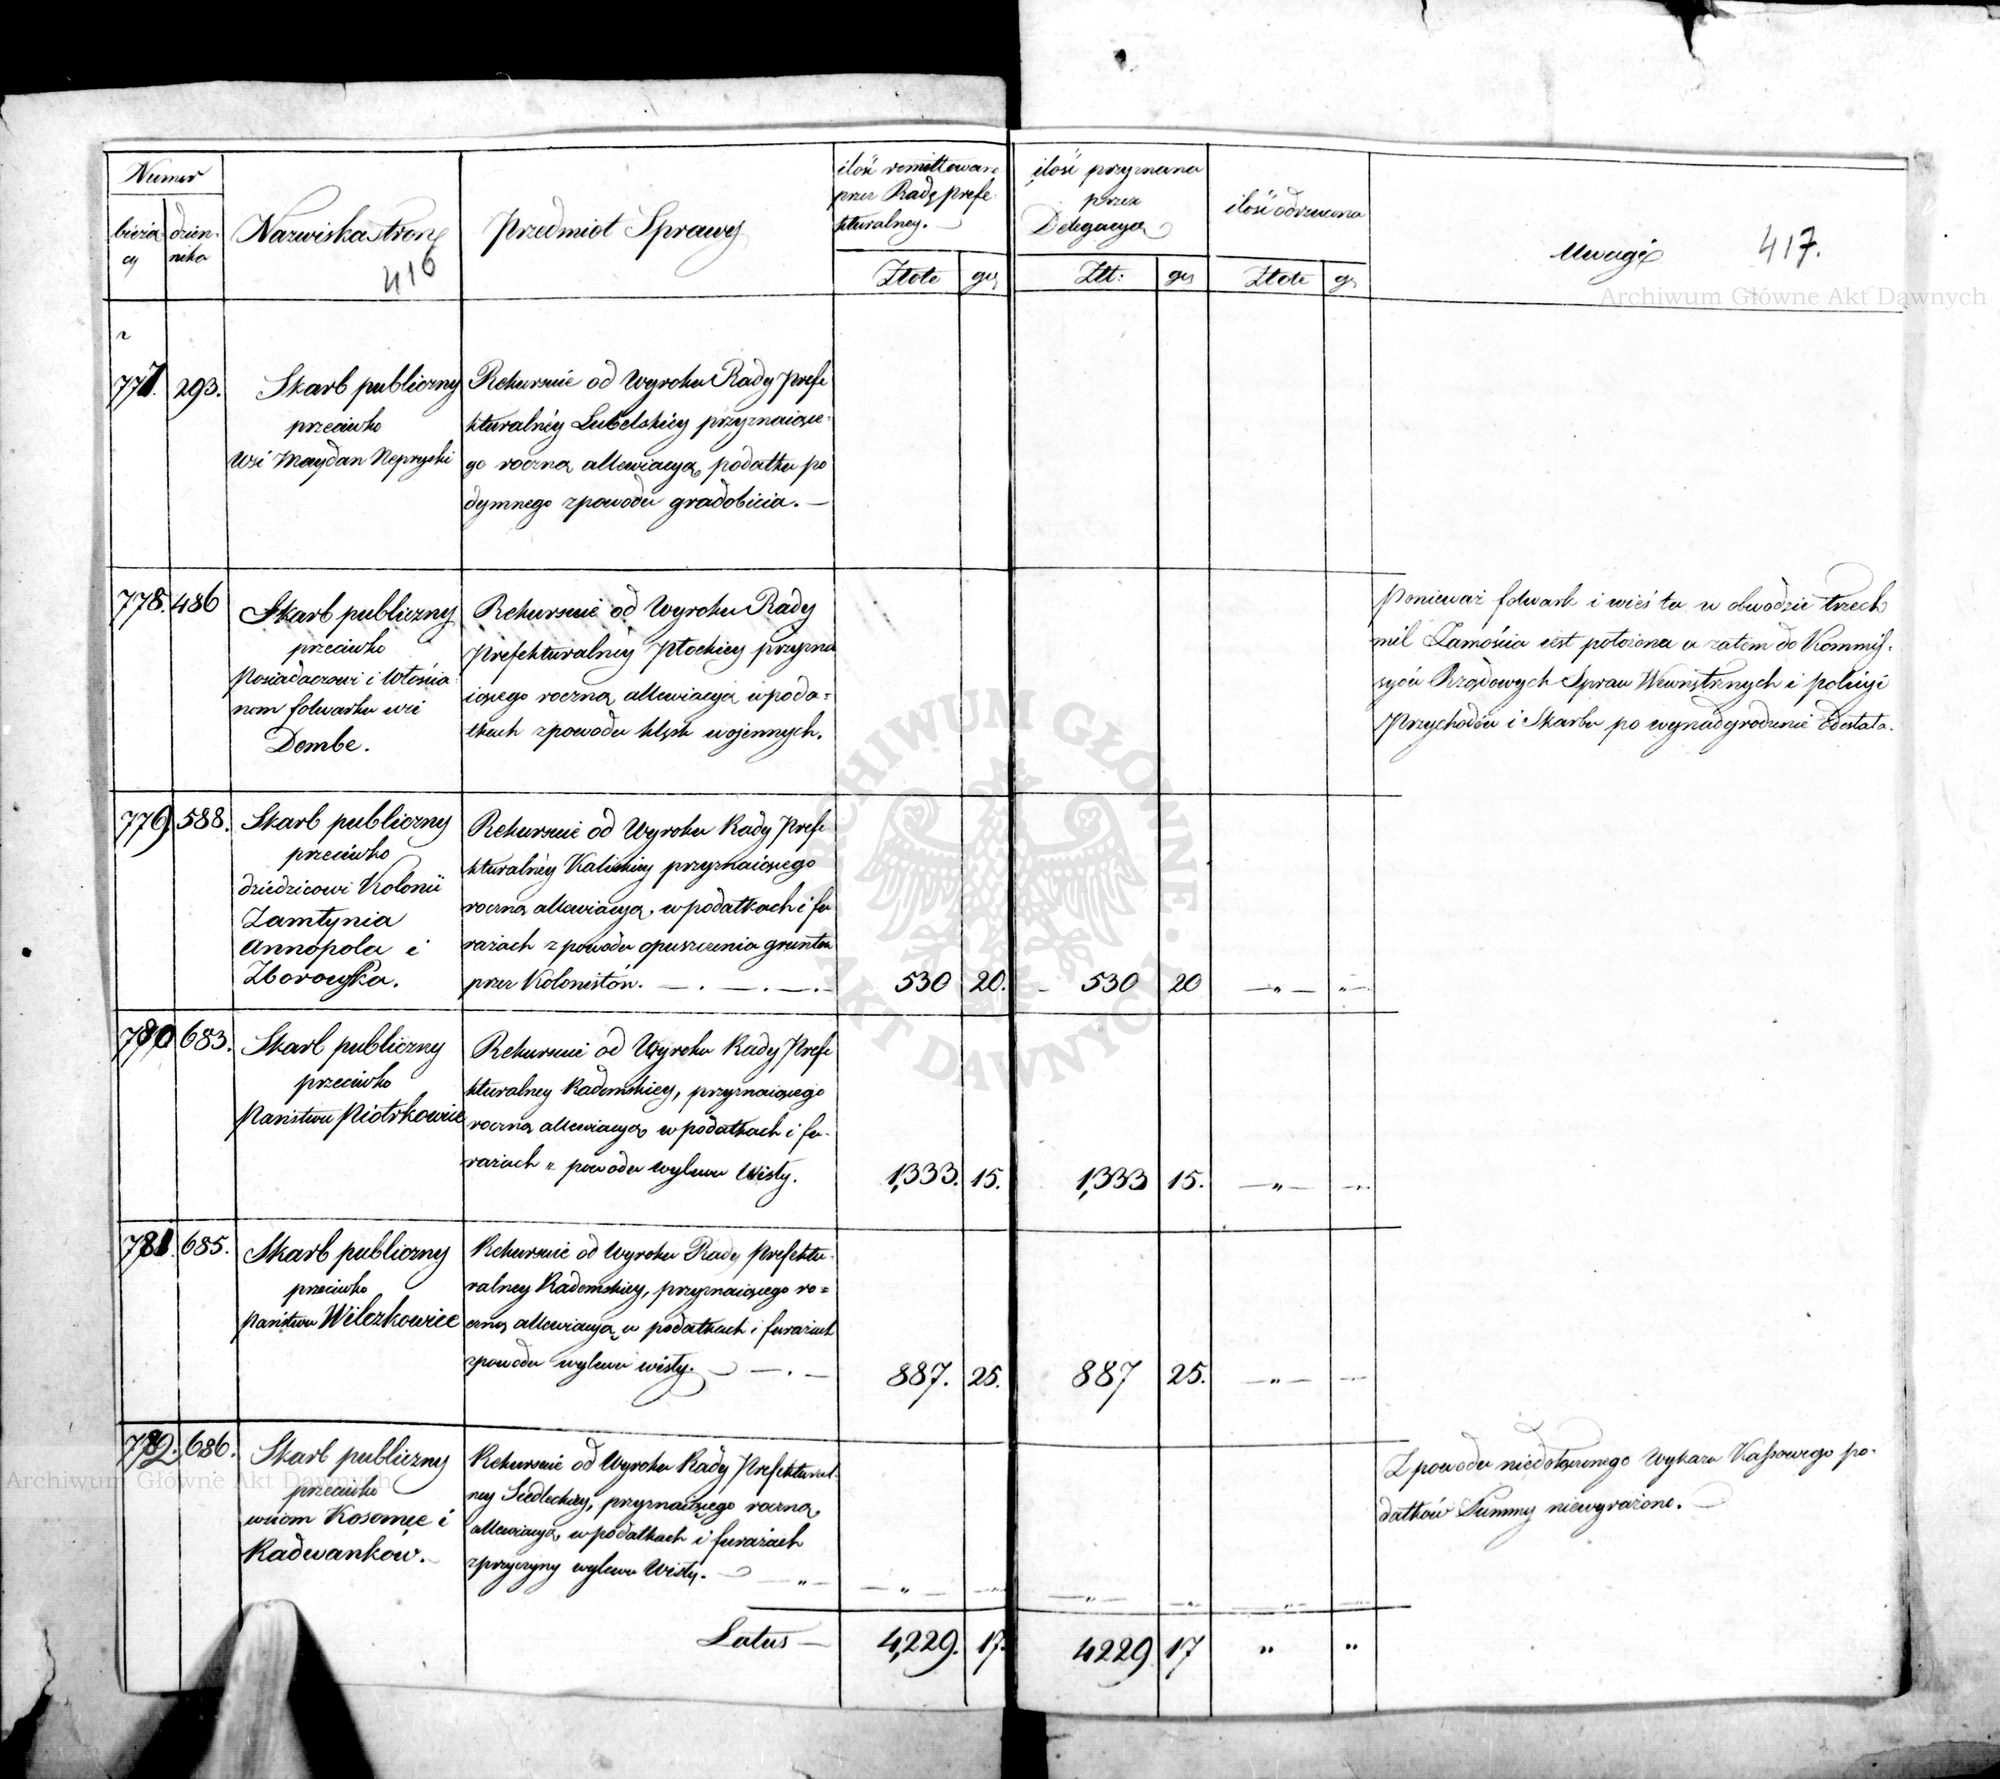 Numer
bieżą
cy
dzien-
nika
Nazwiska stron
416
Przedmiot Sprawy
ilość remittowana
przez Radę Prefe-
kturalney. —
Złote gr
ilość przyznana
przez
Delegacyą
Złt: gr
ilość odrzucona
Złote gr
Uwagi
417.
Archiwum Główne Akt Dawnych
777. 293.
Skarb publiczny
przeciwko
wsi Maydan Nepryski
Rekursuie od Wyroku Rady Prefe
kturalnéy Lubelskiéy przyznaiące-
go roczną allewiacyą podatku po
dymnego z powodu gradobicia. —
778. 486
Skarb publiczny
przeciwko
Posiadaczowi i Włościa
nom folwarku wsi
Dembe.
Rekursuie od Wyroku Rady
Prefekturalnéy Płockiey przyzna
iącego roczną allewiacyą w poda-
tkach z powodu klęsk wojennych.
Ponieważ folwark i wieś ta w obwodzie trzech
mil Zamościa iest położona a zatem do Kommis-
syów Rządowych Spraw Wewnętrznych i policyi
Przychodów i Skarbu po wynadgrodzenie odesłała.
779 588.
Skarb publiczny
przeciwko
dziedzicowi Kolonii
Zamtynia
Annopola i
Zborowska.
Rekursuie od Wyroku Rady Prefe
kturalnéy Kaliskiey przyznaiącego
roczną allewiacyą w podatkach i fu
rażach z powodu opuszczenia gruntów
przez Kolonistów. — . — . — . —
530 20. 530 20 — „ — „ —
780 683.
Skarb publiczny
przeciwko
Państwu Piotrkowice
Rekursuie od Wyroku Rady Prefe
kturalney Radomskiey, przyznaiącego
roczną allewiacyą w podatkach i fu-
rażach z powodu wylewu Wisły.
1,333. 15. 1,333 15. — „ — — „ —
781. 685.
Skarb publiczny
przeciwko
Państwu Wilczkowice
Rekursuie od Wyroku Rady Prefektu-
ralney Radomskiey, przyznaiącego ro-
czną allewiacyą w podatkach i furażach
z powodu wylewu wisły. — . —
887. 25. 887 25. — „ — —
782. 686.
Skarb publiczny
przeciwko
wsiom Kosomęc i
Radwanków. —
Rekursuie od Wyroku Rady Prefektural-
ney Siedleckiey, przyznaiącego roczną
allewiacyą w podatkach i furażach
z przyczyny wylewu Wisły. — „ —
— „ — — „ — — „ — — „ — — „ — — „ —
Z powodu niedołączonego Wykazu Kassowego po-
datków Summy niewyrażono. —
Archiwum Główne Akt Dawnych
Latus —
4,229. 17. 4229 17 „ „
ARCHIWUM GŁÓWNE AKT DAWNYCH